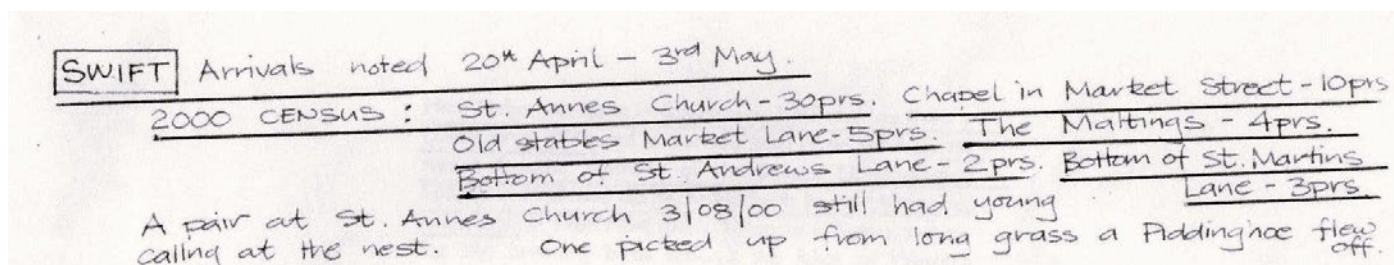 SWIFT Arrivals noted 20th April - 3rd May.
2000 CENSUS : St. Annes Church - 30prs. Chapel in Market Street - 10prs
Old stables Market Lane - 5prs. The Maltings - 4prs.
Bottom of St. Andrews Lane - 2prs. Bottom of St. Martins
Lane - 3prs
A pair at St. Annes Church 3/08/00 still had young
calling at the nest. One picked up from long grass a Piddinghoe flew
off.